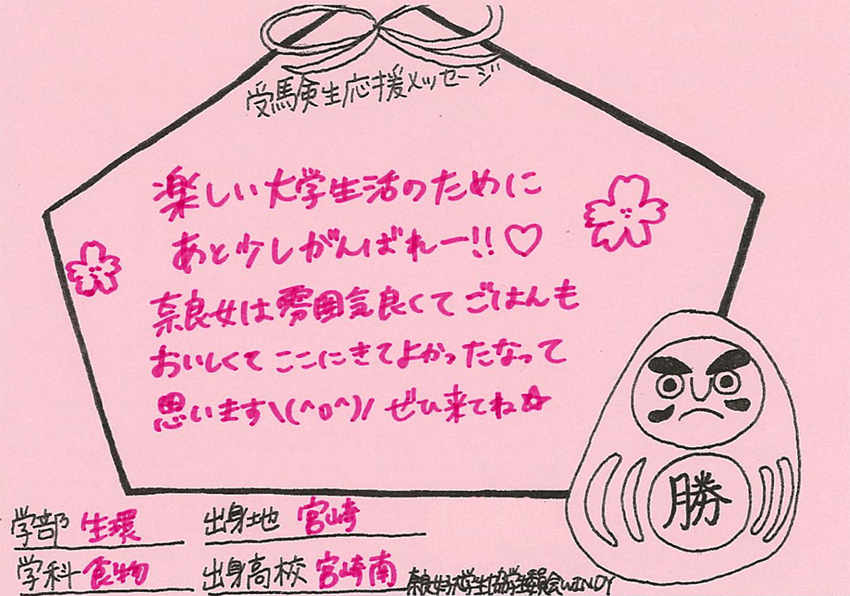 受験生応援メッセージ
楽しい大学生活のために
あと少しがんばれー!!♡
奈良女は雰囲気良くてごはんも
おいしくてここにきてよかったなって
思います\(^o^)/ ぜひ来てね☆
勝
学部 生環 出身地 宮崎
学科 食物 出身高校 宮崎南
奈良女子大学生協学生委員会WINDY